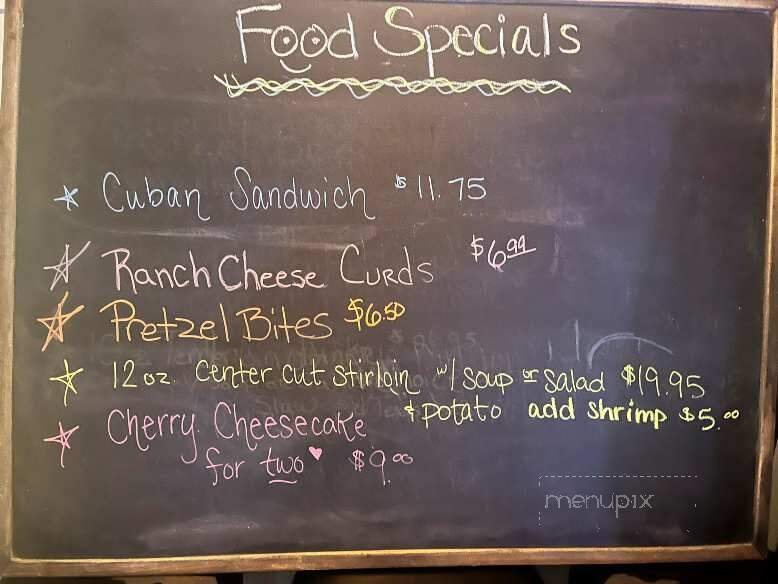 Food Specials
Cuban Sandwich $11.75
Ranch Cheese Curds $6.99
Pretzel Bites $6.50
12 oz. center cut stirloin w/ soup or salad $19.95
& potato add shrimp $5.00
Cherry Cheesecake
for two $9.00
menupix